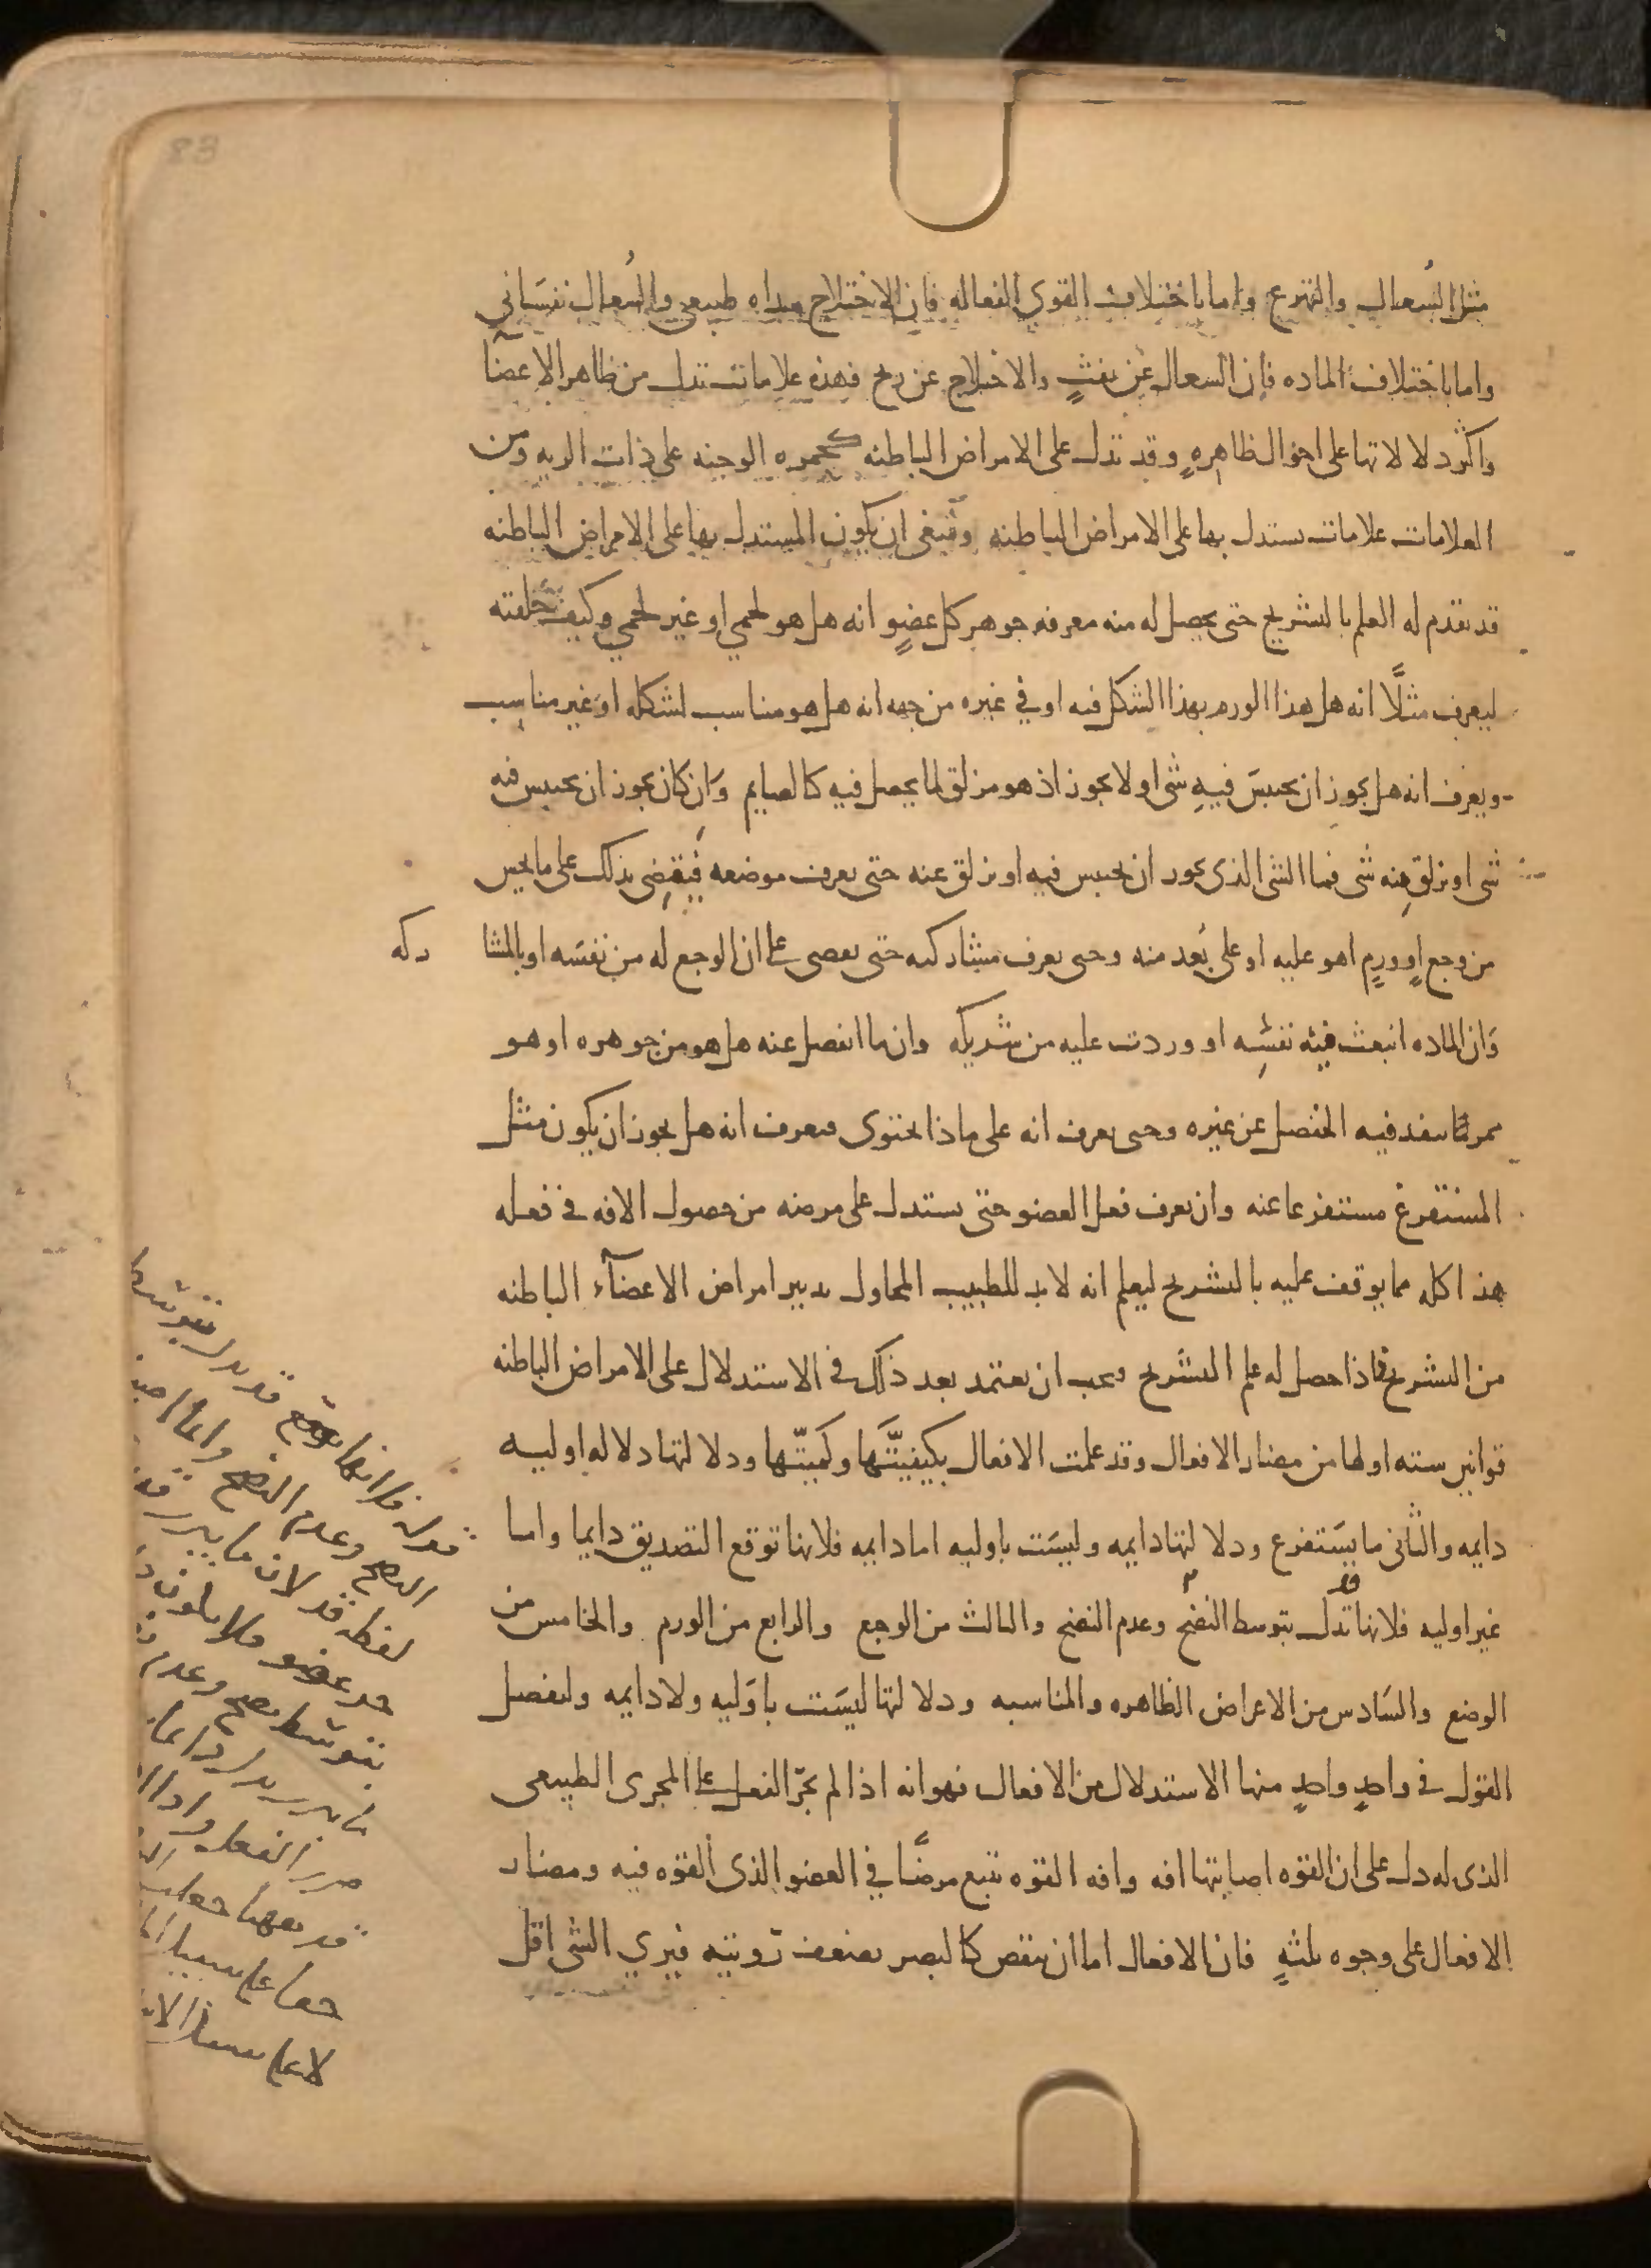 مثل السعال والتهوع واما باختلاف القوي الفعاله فان الاختلاج مبداه طبيعي والسُعال نفسَاني
واما باختلاف الماده فان السعال عن نفثٍ والاختلاج عن ريح فهذه علامات تدل من ظاهر الاعضآ
واكثر دلالاتها على احوال ظاهرهٍ وقد تدل على الامراض الباطنه كحمره الوجنه على ذات الريه ومن
العلامات علامات يستدل بها على الامراض الباطنه وينبغي ان يكون المستدل بها على الامراض الباطنه
قد تقدم له العلم بالتشريح حتى يحصل له منه معرفه جوهر كل عضوٍ انه هل هو لحمي او غير لحمي وكيف خلقته
ليعرف مثلًا انه هل هذا الورم بهذا الشكل فيه او في غيره من جهه انه هل هو مناسب لشكله او غير مناسب
ويعرف انه هل يجوز ان يحتبسَ فيهِ شي او لا يجوز اذ هو مزلق لما يحصل فيه كالصايم وَان كان يجوز ان يحتبس فيه
شي او يزلق مِنه شي فما الشي الذي يجوز ان يحتبس فيه او يزلق عنه حتى يعرف موضعه فيقضي بذلك على ما يحس
من وجع اوٍ ورمٍ اهو عليه او على بُعد منه وحتى يعرف مشاركته حتى يقضي على ان الوجع له من نفسَه او بالمشا ركه
وَان الماده انبعثت فيه نفسِه او وردت عليه من شريكه وان ما انفصل عنه هل هو من جوهره او هو
ممر ينفذ فيه المنفصل عن غيره وحتى يعرف انه على ماذا يحتوي فيعرف انه هل يجوز ان يكون مثل
المستفرغ مستفرغا عنه وان يعرف فعل العضو حتى يستدل على مرضه من حصول الافه في فعله
هذا كله مما يوقف عليه بالتشريح ليعلم انه لا بد للطبيب المحاول تدبير امراض الاعضآء الباطنه
من التشريح فاذا حصل له علم التشريح وجب ان يعتمد بعد ذلك في الاستدلال على الامراض الباطنه
قوانين سته اولها من مضار الافعال وقد علمت الافعال بكيفيتَّها وكميتّها ودلالتها دلاله اوليه
دايمه والثاني ما يسَتفرغ ودلالتها دايمه وليسَت باوليه اما دايمه فلانها توقع التصديق دايما واما
غير اوليه فلانها قد تدل بتوسط النضج وعدم النضج والثالث من الوجع والرابع من الورم والخامس من
الوضع والسَادس من الاعراض الظاهره والمناسبه ودلالتها ليسَت باوَليه ولا دايمه ولنفصل
القول في واحدٍ واحدٍ منها الاستدلال من الافعال فهو انه اذا لم يجرّ الفعل على المجرى الطبيعي
الذي له دل على ان القوه اصابتها افه وافه القوه تتبع مرضًا في العضو الذي القوه فيه ومضار
الافعال على وجوه ثلثهٍ فان الافعال اما ان تنقص كالبصر تضعف رَويته فيري الشي اقل
قوله فلانها توقع قد يدل بتوسط
النضج وعدم النضج وانما
لفظه قد لان ما يبرز
عضو
بتوسط نضج وعدم
ما يبرز يدل دايما
ضرر الفعل واذا
قد بعضها جعلت
على سبيل
لا على سبيل